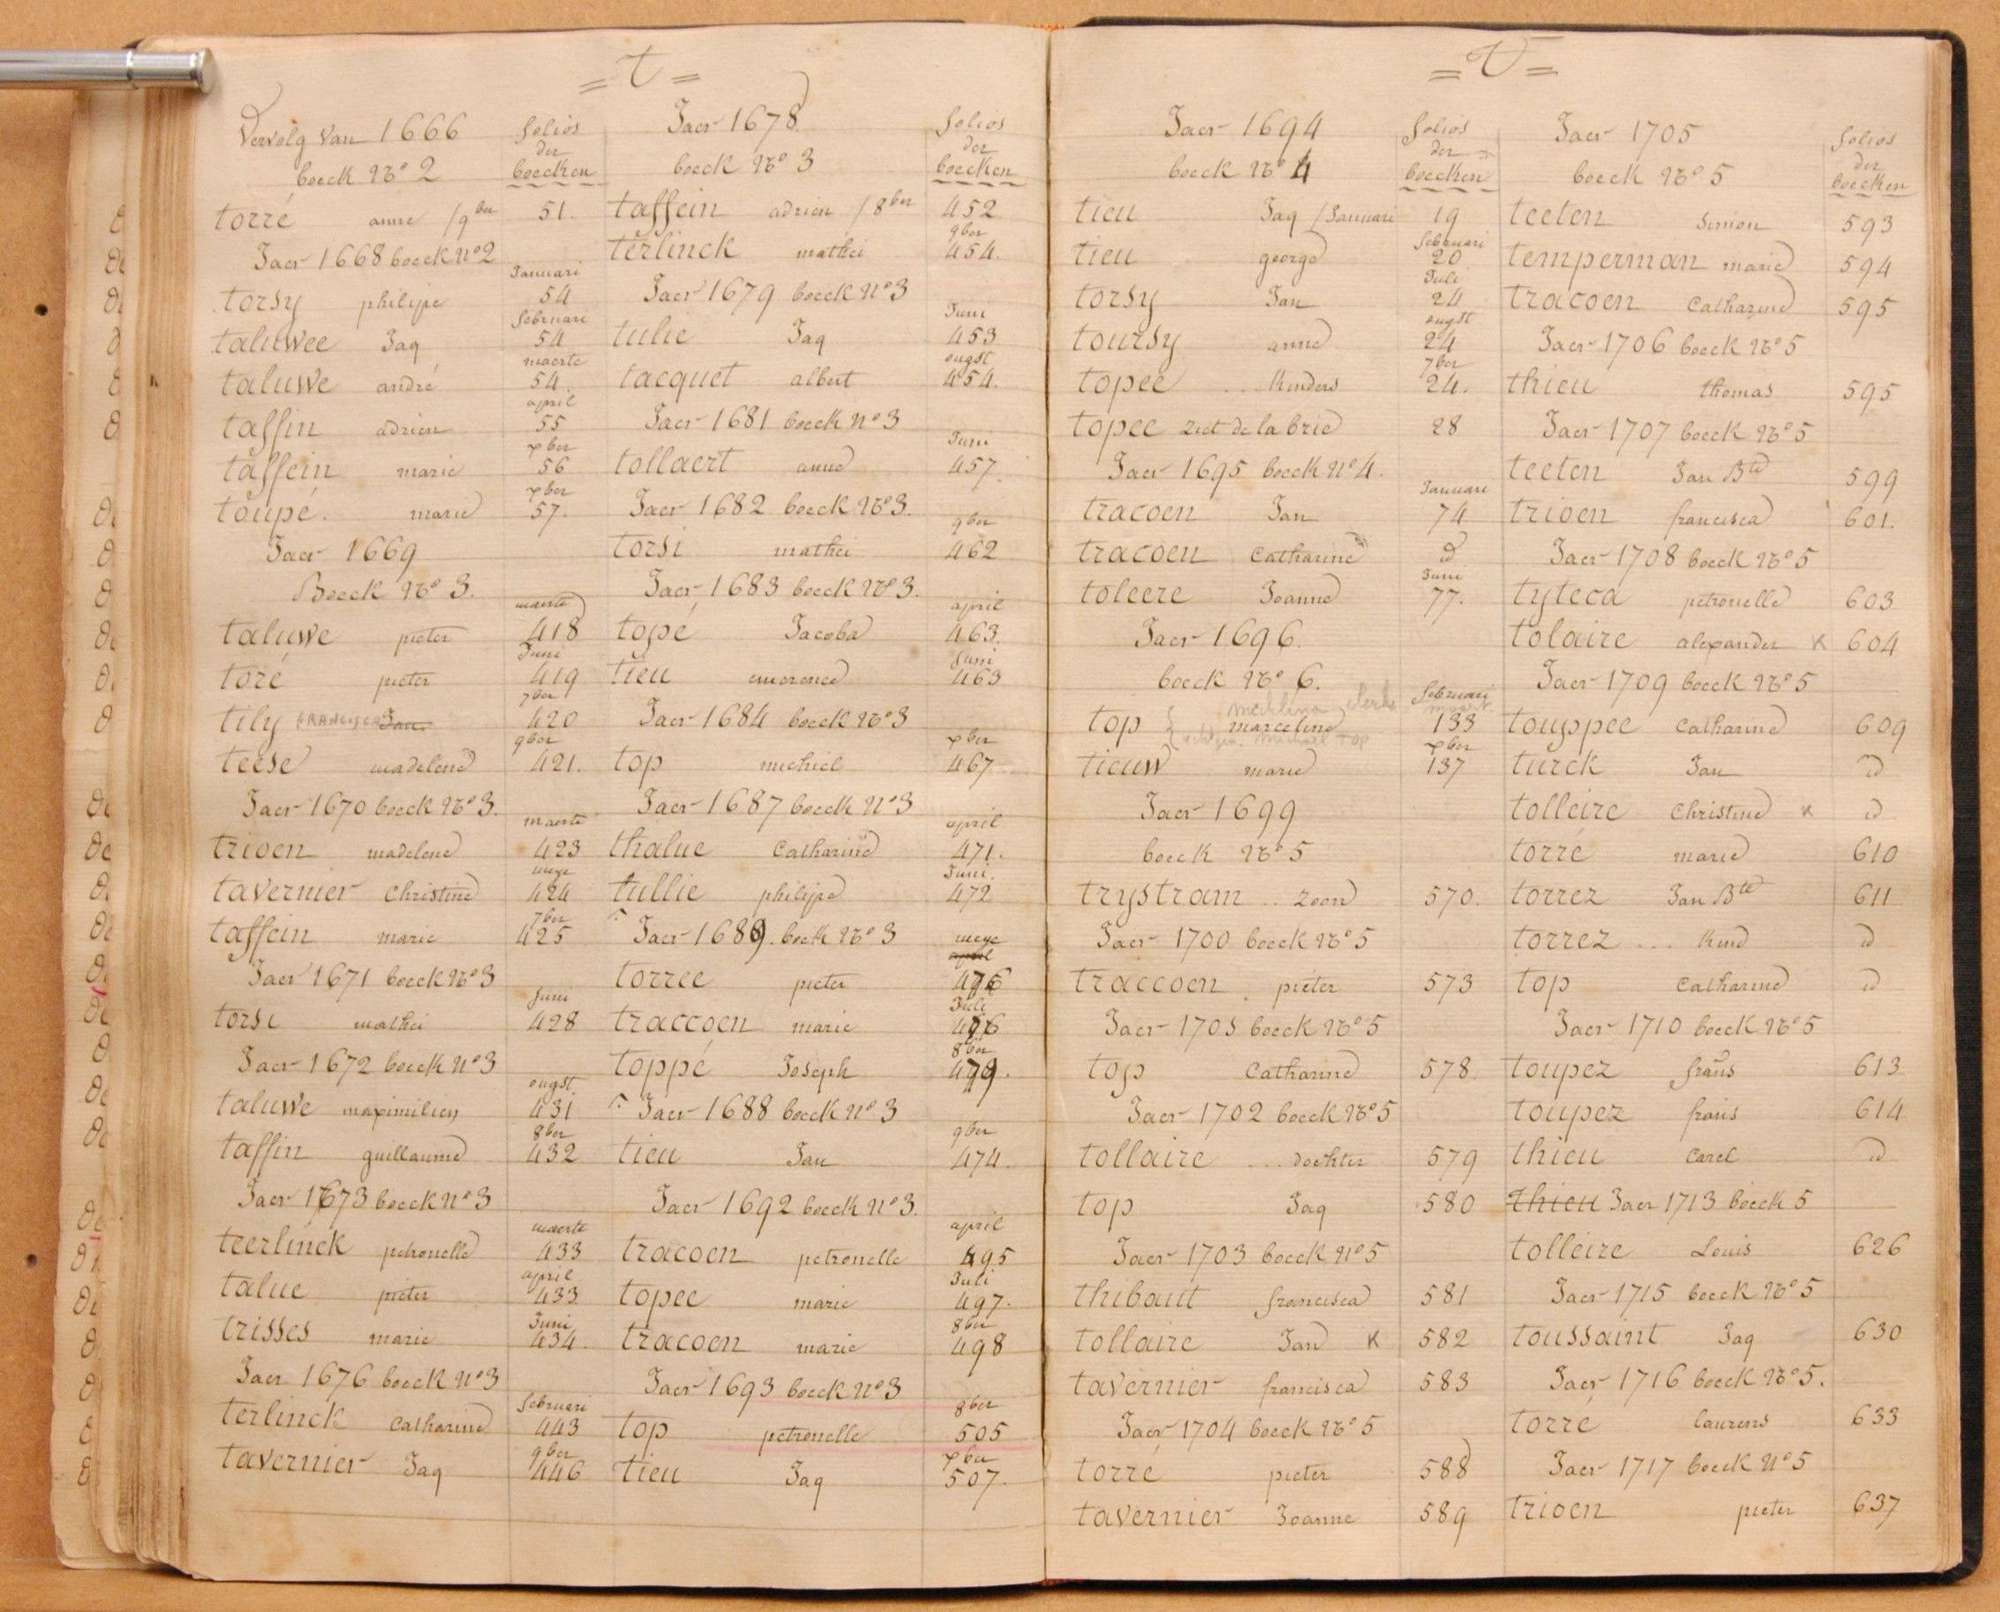 = T =
Vervolg van 1666
boeck No 2
folios
der
boecken
torré anne / 9ber 51.
Jaer 1668 boeck No 2
Januari
torsy philipe 54
februari
taluwee Jaq 54
maerte
taluwe andré 54.
april
taffin adrien 55
xber
taffein marie 56
xber
toupé. marie 57.
Jaer 1669
Boeck No 3.
maerte
taluwe pieter 418
Juni
toré pieter 419
7ber
tily FRANCISCA Jan 420
9ber
teese madelene 421.
Jaer 1670 boeck No 3.
maerte
trioen madelene 423
meye
tavernier Christine 424
7ber
taffein marie 425
Jaer 1671 boeck No 3
Juni
torsi mathei 428
Jaer 1672 boeck No 3
ougst
taluwe maximilien 431
8ber
taffin guillaume 432
Jaer 1673 boeck No 3
maerte
teerlinck petronelle 433
april
talue pieter 433
Juni
trisses marie 434.
Jaer 1676 boeck No 3
februari
terlinck Catharine 443
9ber
tavernier Jaq 446
Jaer 1678
boeck No 3
folios
der
boecken
taffein adrien / 8ber 452
9ber
terlinck mathei 454.
Jaer 1679 boeck No 3
Juni
tulie Jaq 453
ougst
tacquet albert 454.
Jaer 1681 boeck No 3
Juni
tollaert anne 457.
Jaer 1682 boeck No 3.
9ber
torsi mathei 462
Jaer 1683 boeck No 3.
april
topé Jacoba 463.
Juni
tieu emerence 463
Jaer 1684 boeck No 3
xber
top michiel 467
Jaer 1687 boeck No 3
april
thalue Catharine 471.
Juni.
tullie philipe 472
Jaer 1689. boeck No 3
meye
april
torree pieter 476
Juli
traccoen marie 476
8ber
toppé Joseph 479.
Jaer 1688 boeck No 3
9ber
tieu Jan 474.
Jaer 1692 boeck No 3.
april
tracoen petronelle 495
Juli
topee marie 497.
8ber
tracoen marie 498
Jaer 1693 boeck No 3
8ber
top petronelle 505
xber
tieu Jaq 507.
= T =
Jaer 1694
boeck No 4
folios
der
boecken
tieu Jaq / Januari 19
februari
tieu george 20
Juli
torsy Jan 24
ougst
toursy anne 24
7ber
topee .. Kinders 24.
topee ziet de la brie 28
Jaer 1695 boeck No 4.
Januari
tracoen Jan 74
tracoen Catharine d
Juni
toleere Joanne 77.
Jaer 1696.
boeck No 6.
februari
top marceline 133
Michael Top
xber
tieuw marie 137
Jaer 1699
boeck No 5
trystram .. zoon 570.
Jaer 1700 boeck No 5
traccoen . pieter 573
Jaer 1701 boeck No 5
top Catharine 578.
Jaer 1702 boeck No 5
tollaire ... dochter 579
top Jaq 580
Jaer 1703 boeck No 5
thibaut francisca 581
tollaire Jan K 582
tavernier francisca 583
Jaer 1704 boeck No 5
torré pieter 588
tavernier Joanne 589
Jaer 1705
boeck No 5
folios
der
boecken
teeten Simon 593
temperman marie 594
tracoen Catharine 595
Jaer 1706 boeck No 5
thieu thomas 595
Jaer 1707 boeck No 5
teeten Jan Bte 599
trioen francisca 601.
Jaer 1708 boeck No 5
tyteca petronelle 603
tolaire alexander K 604
Jaer 1709 boeck No 5
touppee Catharine 609
turck Jan id
tolleire Christine K id
torré marie 610
torrez Jan Bte 611
torrez ... Kind id
top Catharine id
Jaer 1710 boeck No 5
toupez frans 613
toupez frans 614
thieu Carel id
thieu Jaer 1713 boeck 5
tolleire Louis 626
Jaer 1715 boeck No 5
toussaint Jaq 630
Jaer 1716 boeck No 5.
torré laurens 633
Jaer 1717 boeck No 5
trioen pieter 637